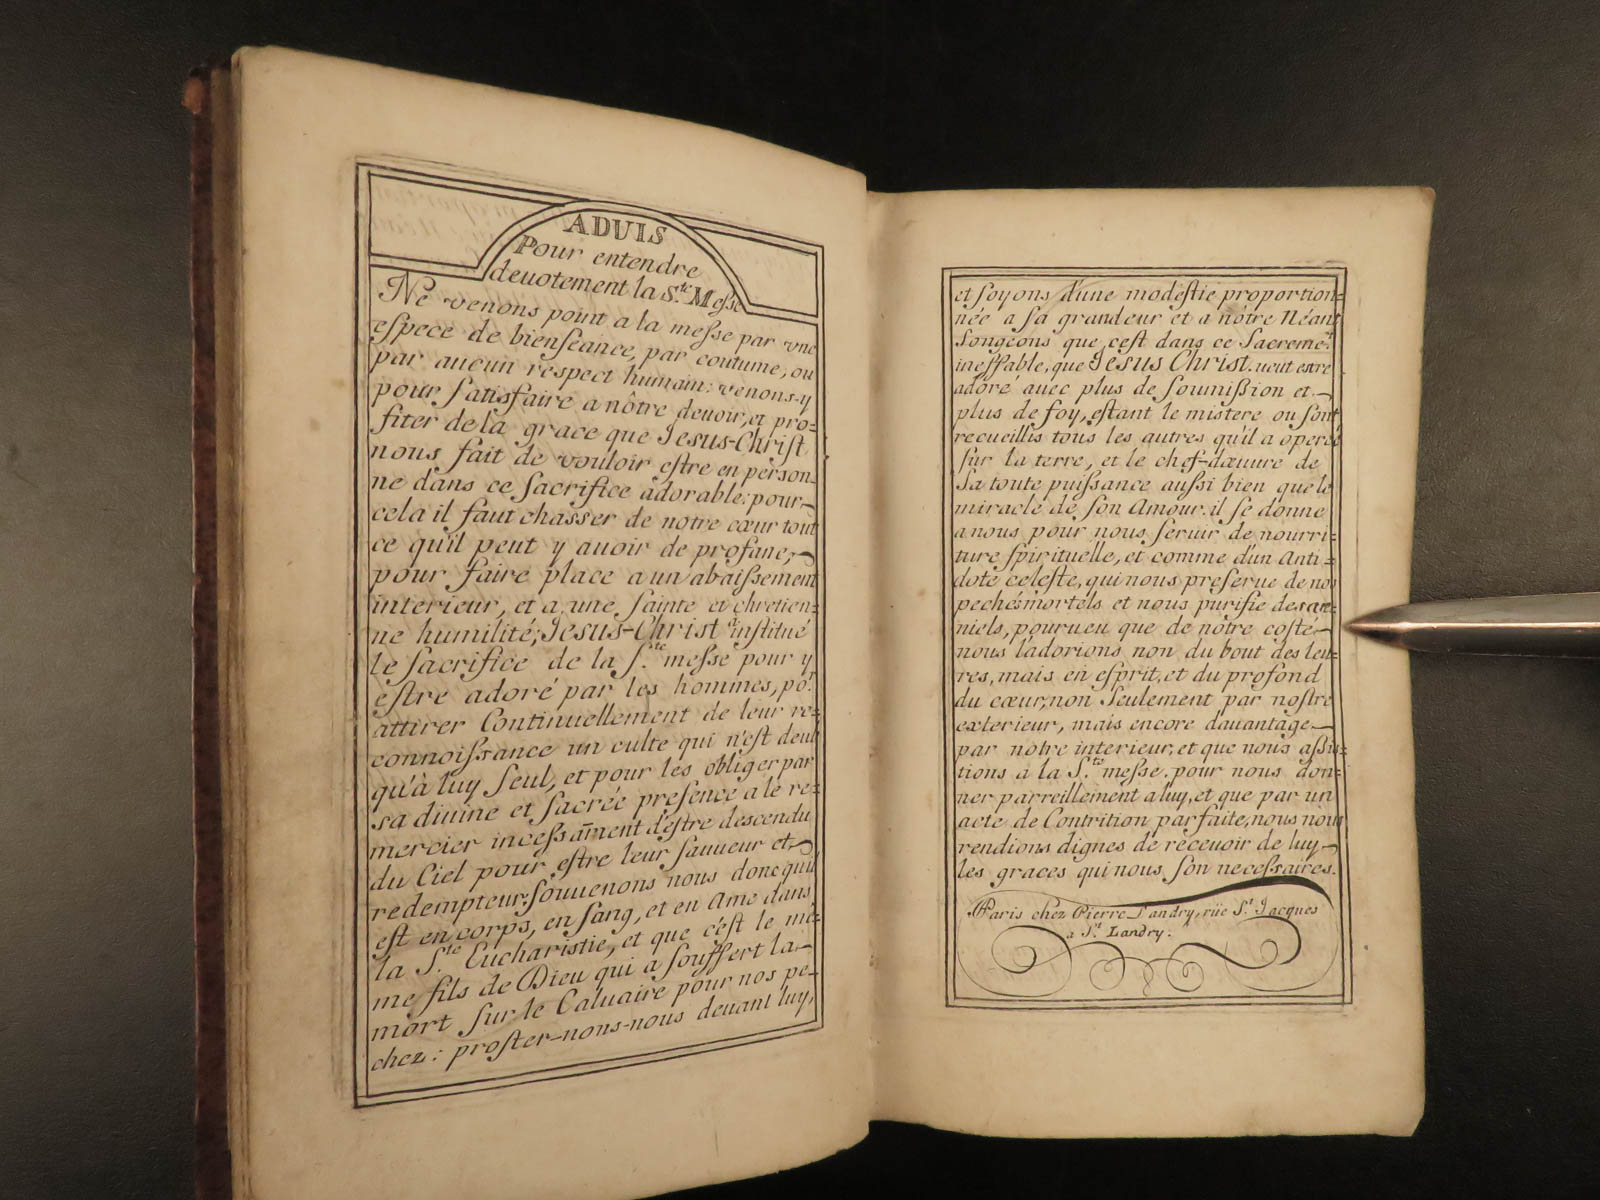 ADUIS
Pour entendre
deuotement la S.te Meſse
Ne venons point a la meſse par vne
eſpece de bienſeance, par coutume, ou
par aucun respect humain: venons-y
pour ſatisfaire a nôtre deuoir, et pro=
fiter de la grace que Jesus-Chriſt
nous fait de vouloir eſtre en person-
ne dans ce ſacrifice adorable: pour
cela il faut chasser de notre cœur tout
ce qu'il peut y auoir de profane,
pour faire place a un abaiſsement
interieur, et a une ſainte et chretien=
ne humilité; Jesus-Christ a institué
le ſacrifice de la S.te meſse pour y
eſtre adoré par les hommes, po.r
attirer Continuellement de leur re=
connoiſsance un culte qui n'eſt deub
qu'à luy ſeul, et pour les obliger par
sa diuine et ſacrée preſence a le re=
mercier inceſsam̄ent d'eſtre descendu
du Ciel pour eſtre leur ſauueur et
redempteur. ſouuenons nous donc qu'il
eſt en corps, en ſang, et en Ame dans
la S.te Eucharistie, et que c'éſt le mé=
me fils de Dieu qui a ſouffert la
mort ſur le Caluaire pour nos pe-
chez: proſter-nons-nous deuant luy,
et ſoyons d'une modeſtie proportion=
née a ſa grandeur et a nôtre Néant
Songeons que c'eſt dans ce Sacreme.t
ineffable, que Jesus Christ. ueut estre
adoré auec plus de ſoumiſsion et
plus de foy, eſtant le mistere ou ſont
recueillis tous les autres qu'il a operé
ſur la terre, et le chef-dœuure de
ſa toute puiſsance auſsi bien que le
miracle de ſon Amour. il ſe donne
a nous pour nous ſeruir de nourri=
ture ſpirituelle, et comme d'un Anti=
dote celeſte, qui nous preſerue de nos
peché mortels et nous purifie des ue-
niels, pourueu que de nôtre coſté
nous l'adorions non du bout des leu=
res, mais en eſprit, et du profond
du cœur, non ſeulement par noſtre
exterieur, mais encore dauantage
par nôtre interieur, et que nous aſſis=
tions a la S.te meſse. pour nous don=
ner parreillement a luy, et que par un
acte de Contrition parfaite, nous nous
rendions dignes de receuoir de luy
les graces qui nous ſon neceſsaires.
Paris chez Pierre Landry, rüe S.t Jacques
a S.t Landry.